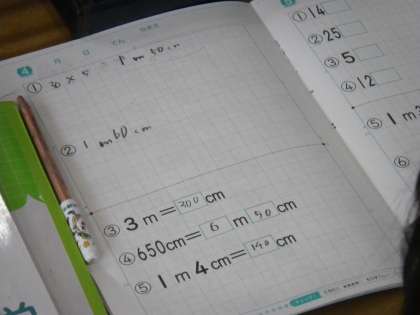 4 月 日 てん
① 30 × 5 = 1 m 50 cm
② 1 m 60 cm
③ 3 m = 300 cm
④ 650cm = 6 m 50 cm
⑤ 1 m 4 cm = 140 cm
① 14
② 25
③ 5
④ 12
⑤ 1 m
⑥